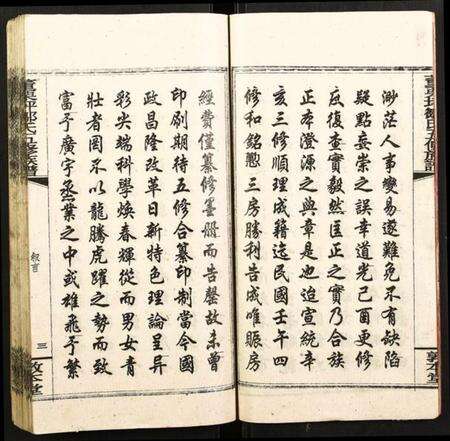 渺茫人事變易遂難免不有缺陷
疑點妄崇之誤幸道光己酉更修
反復查實毅然匡正之實乃合族
正本澄源之典章是也迨宣統辛
亥三修順理成籍迄民國壬午四
修和銘懇三房勝利告成唯賑房
經費僅纂修墨譜而告罄故未曾
印刷期待五修合纂印制當今國
政昌隆改革日新特色理論呈异
彩尖端科學煥春輝從而男女青
壯者罔不以龍騰虎躍之勢而致
富于廣宇丞業之中或雄飛于繁
敦本堂
三
敦本堂